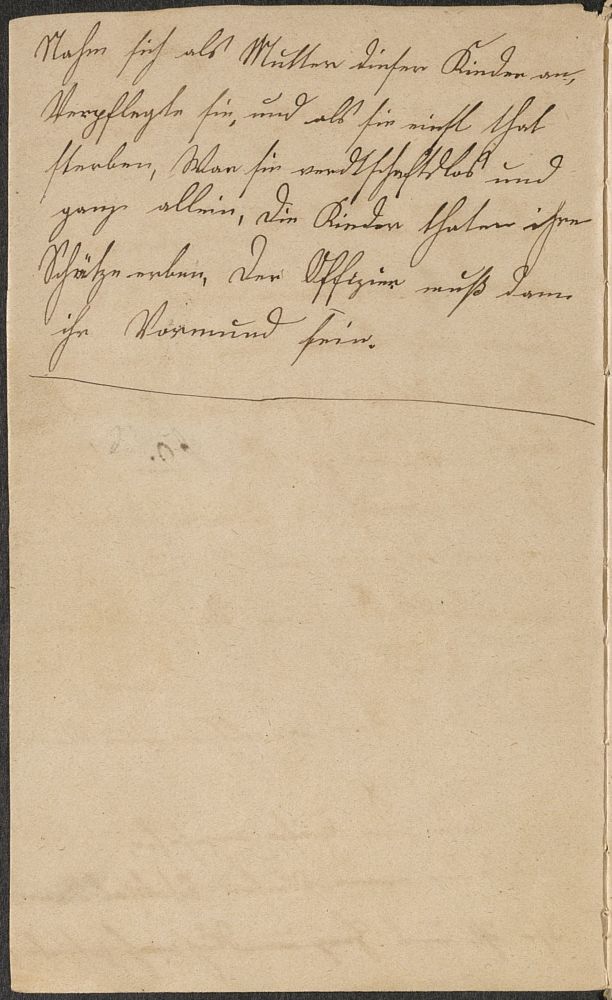 Nahm sich als Mutter dieser Kinder an,
Verpflegte sie, und als sie einst that
sterben, War sie und
ganz allein, die Kinder thaten ihre
Schätze erben, Der Offizier muß dann
ihr Vormund sein.